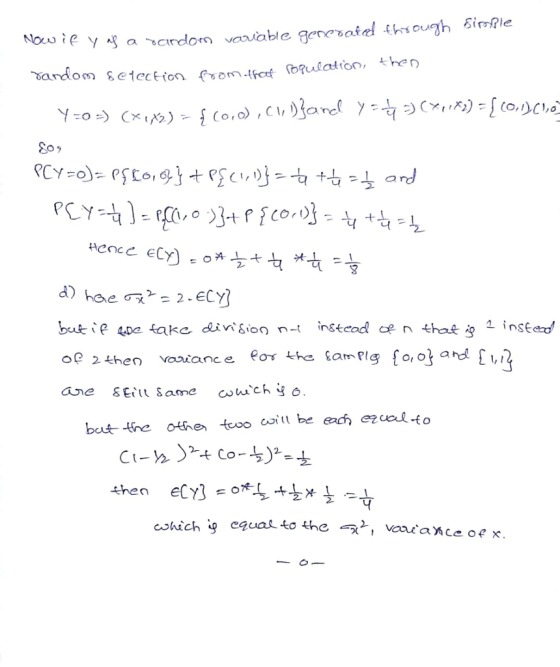 Now if Y is a random variable generated through simple
random selection from that population, then
Y=0 => (x1,x2) = { (0,0) , (1,1)} and Y = 1/4 => (x1,x2) = { (0,1),(1,0)
So,
P(Y=0) = P{(0,0)} + P{(1,1)} = 1/4 + 1/4 = 1/2 and
P[Y=1/4] = P{(1,0)} + P{(0,1)} = 1/4 + 1/4 = 1/2
Hence E(Y) = 0* 1/2 + 1/4 * 1/4 = 1/8
d) here σx² = 2.E(Y}
but if we take division n-1 instead of n that is 1 instead
of 2 then variance for the sample {0,0} and {1,1}
are still same which is 0.
but the other two will be each equal to
(1-1/2)² + (0-1/2)² = 1/2
then E(Y} = 0*1/2 + 1/2 * 1/2 = 1/4
which is equal to the σx², variance of x.
— 0 —